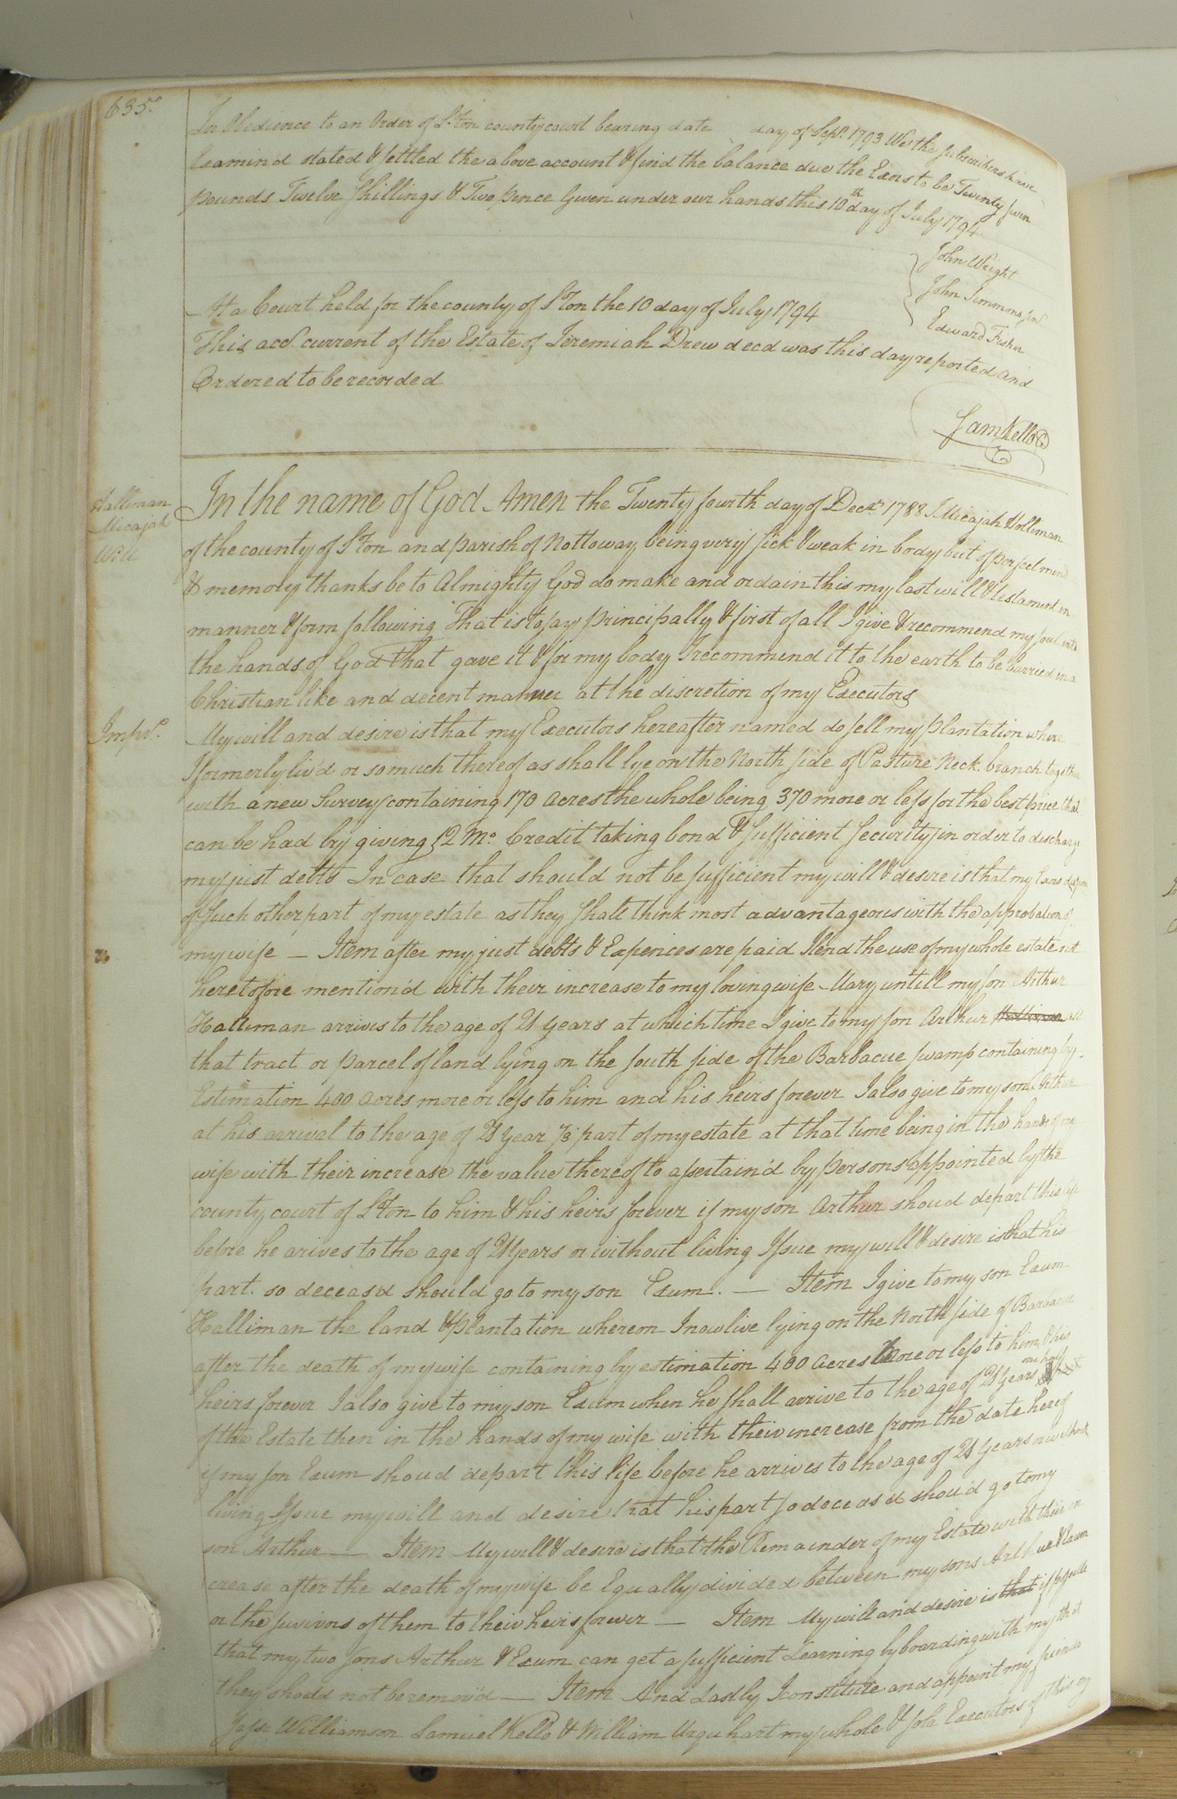 635.
In Obedience to an Order of S.ton county court bearing date day of Sept. 1793 We the Subscribers have
Examind stated & settled the above account & find the balance due the Exrs to be Twenty
pounds Twelve Shillings & Two pence Given under our hands this 10th day of July 1794
John Wright
John Simmons
Edward Fisher
At a Court held for the county of S.ton the 10 day of July 1794
This acct current of the Estate of Jeremiah Drew decd was this day reported and
Ordered to be recorded
Sam Kello CC
Halliman
Micajah
Will
In the name of God Amen the Twenty fourth day of Decr 1788 I Micajah Holliman
of the county of S.ton and parish of Nottoway being very sick & weak in body but of perfect mind
& memory thanks be to Almighty God do make and ordain this my last will & testament in
manner & form following That is to say Principally & first of all I give & recommend my soul into
the hands of God that gave it & for my body I recommend it to the earth to be burried in a
Christian like and decent manner at the discretion of my Executors
Impr.
My will and desire is that my Executors hereafter named do sell my plantation where
I formerly liv'd or so much thereof as shall lye on the North side of Pasture Neck branch together
with a new Survey containing 170 acres the whole being 370 more or less for the best price that
can be had by giving 12 Mo. Credit taking bond & sufficient Security in order to discharge
my just debts In case that should not be sufficient my will & desire is that my Exrs dispose
of such other part of my estate as they shall think most advantageous with the approbation of
my wife — Item after my just debts & Expences are paid I lend the use of my whole estate not
heretofore mention'd with their increase to my loving wife Mary untill my son Arthur
Halliman arrives to the age of 21 years at which time I give to my son Arthur all
that tract or parcel of land lying on the south side of the Barbacue swamp containing by
Estimation 400 acres more or less to him and his heirs forever I also give to my son Arthur
at his arrival to the age of 21 year 1/3 part of my estate at that time being in the hands of my
wife with their increase the value thereof to asertain'd by persons appointed by the
county court of S.ton to him & his heirs forever if my son Arthur shoud depart this life
before he arives to the age of 21 years or without living Issue my will & desire is that his
part so deceasd should go to my son Exum. — Item I give to my son Exum
Halliman the land & Plantation whereon I now live lying on the North side of Barbacue
after the death of my wife containing by estimation 400 acres more or less to him & his
heirs forever I also give to my son Exum when he shall arrive to the age of 21 years one half
of the Estate then in the hands of my wife with their increase from the date hereof
if my son Exum shoud depart this life before he arrives to the age of 21 years or without
living Issue my will and desire that his part so deceasd shoud go to my
son Arthur — Item My will & desire is that the Remainder of my Estate with their in
crease after the death of my wife be Equally divided between my sons Arthur & Exum
or the survivors of them to their heirs forever — Item My will and desire is that if possible
that my two sons Arthur & Exum can get a sufficient Learning by boarding with my that
they should not be remov'd — Item And Lastly I constitute and appoint my friends
Jesse Williamson Samuel Kello & William Urquhart my whole & sole Executors of this my